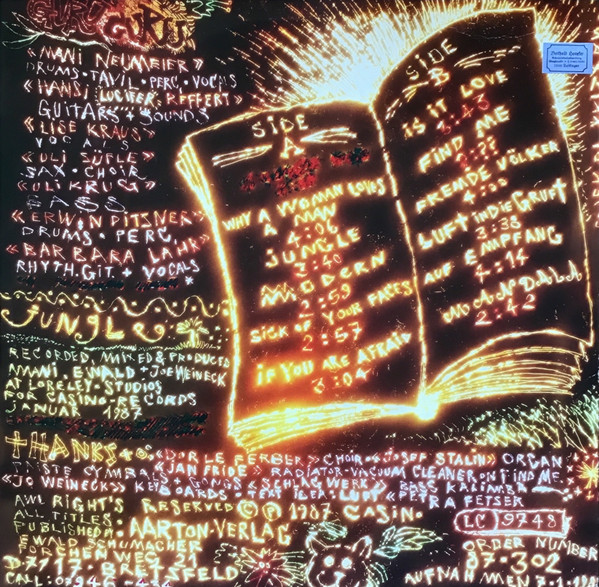 GURU
GURU
«MANI NEUMEIER»
DRUMS • TAVIL • PERC, • VOCALS
«HANSI LUCIFER REFFERT»
GUITARS + SOUNDS
«LISE KRAUS»
VOCALS
«ULI SÜFLE»
SAX • CHOIR
«ULI KRUG»
BASS
«ERWIN DITSNER»
DRUMS • PERC,
«BARBARA LAHR»
RHYTH. GIT. + VOCALS
JUNGLE
RECORDED, MIXED & PRODUCED
MANI, EWALD + JOE WEINECK
AT LORELEY-STUDIOS
FOR CASINO-RECORDS
JANUAR 1987
SIDE
A
WHY A WOMAN LOVES
A MAN
4:06
JUNGLE
3:40
MODERN
2:59
SICK OF YOUR FACES
2:57
IF YOU ARE AFRAID
3:04
SIDE
B
IS IT LOVE
3:43
FIND ME
FREMDE VÖLKER
4:00
LUFT IN DIE GRUFT
3:38
AUF EMPFANG
4:14
MANDALA
2:42
THANKS to: «DORLE FERBER» CHOIR + «JOSEF STALIN» ORGAN +
CYMBAL «JAN FRIDE» RADIATOR-VACUUM CLEANER ON FIND ME.
«JO WEINECK» KEYBOARDS • TEXT IDEA: LUFT «PETRA FETSER
+ GONGS «SCHLAGWERK» BASS KALIMBA
ALL RIGHT'S RESERVED © ℗ 1987 CASINO
ALL TITLES
PUBLISHED: AARTON-VERLAG
EWALD SCHUMACHER
FORCHENRAIN
D-7117 BRETZFELD
CALL: 07946-
LC 9748
ORDER NUMBER
07-302
AUFNAHME